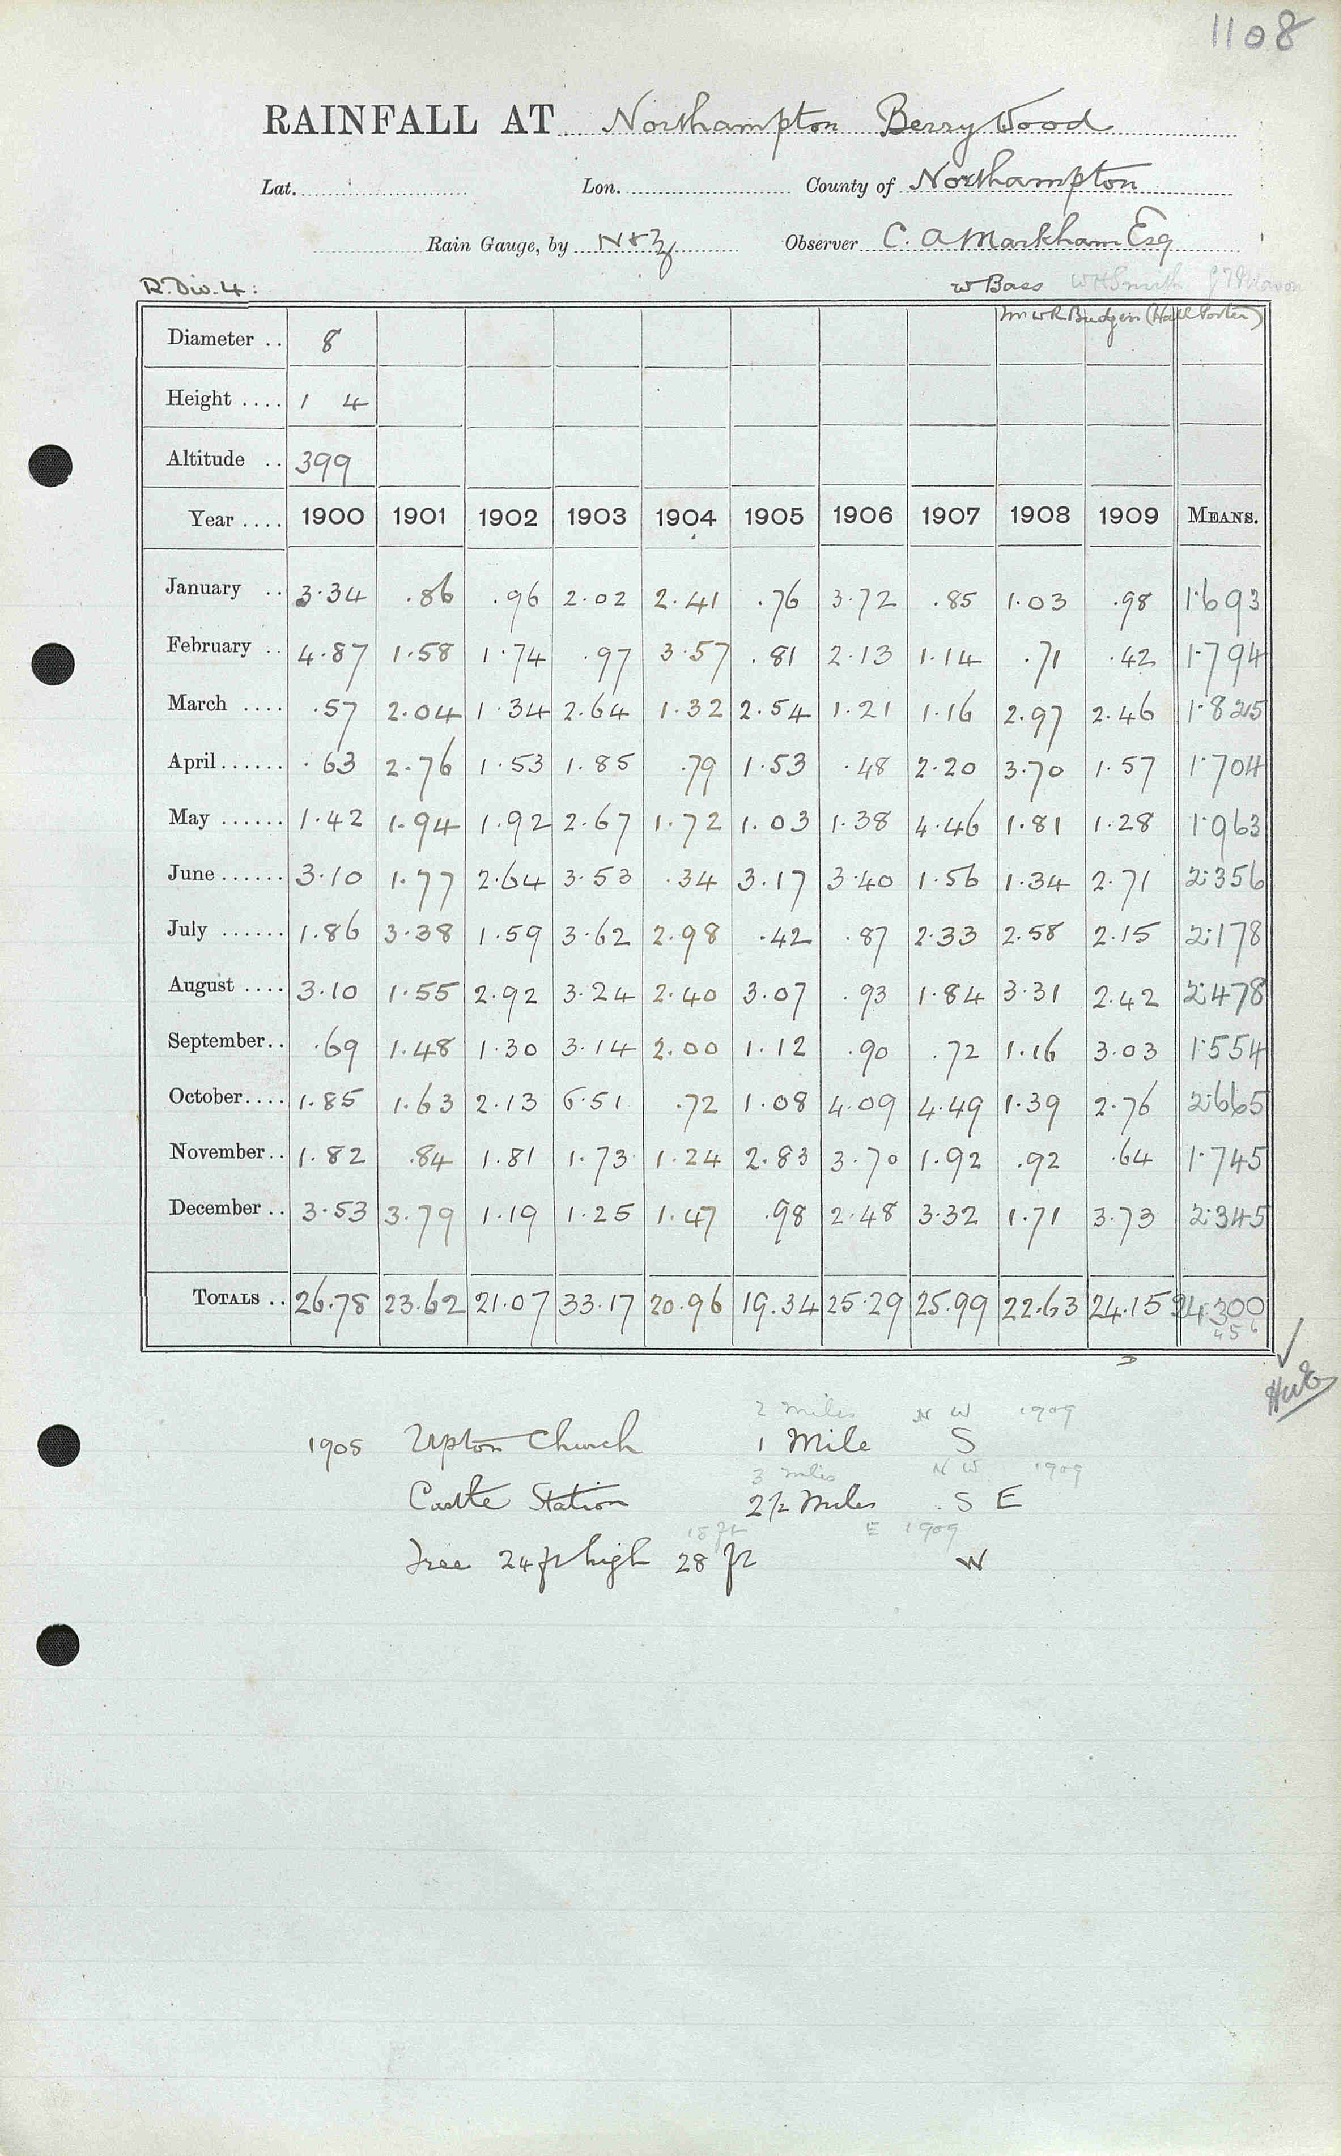 1108
RAINFALL AT Northampton Berry Wood
Lat. Lon. County of Northampton
Rain Gauge, by N & Z Observer C. A Markham Esq
R. Div. 4: W Bass W H Smith
Mr W R Budgen (Hall Porter)
Diameter .. 8
Height .... 1 4
Altitude .. 399
Year .... 1900 1901 1902 1903 1904 1905 1906 1907 1908 1909 MEANS.
January .. 3.34 .86 .96 2.02 2.41 .76 3.72 .85 1.03 .98 1.693
February .. 4.87 1.58 1.74 .97 3.57 .81 2.13 1.14 .71 .42 1.794
March .... .57 2.04 1.34 2.64 1.32 2.54 1.21 1.16 2.97 2.46 1.825
April ...... .63 2.76 1.53 1.85 .79 1.53 .48 2.20 3.70 1.57 1.704
May ...... 1.42 1.94 1.92 2.67 1.72 1.03 1.38 4.46 1.81 1.28 1.963
June ...... 3.10 1.77 2.64 3.53 .34 3.17 3.40 1.56 1.34 2.71 2.356
July ...... 1.86 3.38 1.59 3.62 2.98 .42 .87 2.33 2.58 2.15 2.178
August .... 3.10 1.55 2.92 3.24 2.40 3.07 .93 1.84 3.31 2.42 2.478
September.. .69 1.48 1.30 3.14 2.00 1.12 .90 .72 1.16 3.03 1.554
October.... 1.85 1.63 2.13 6.51 .72 1.08 4.09 4.49 1.39 2.76 2.665
November.. 1.82 .84 1.81 1.73 1.24 2.83 3.70 1.92 .92 .64 1.745
December .. 3.53 3.79 1.19 1.25 1.47 .98 2.48 3.32 1.71 3.73 2.345
TOTALS .. 26.78 23.62 21.07 33.17 20.96 19.34 25.29 25.99 22.63 24.15 24.300
456
2 miles N W 1909
1905 Upton Church 1 Mile S
3 miles N W 1909
Castle Station 2½ Miles S E
18 ft E 1909
Tree 24 ft high 28 ft W